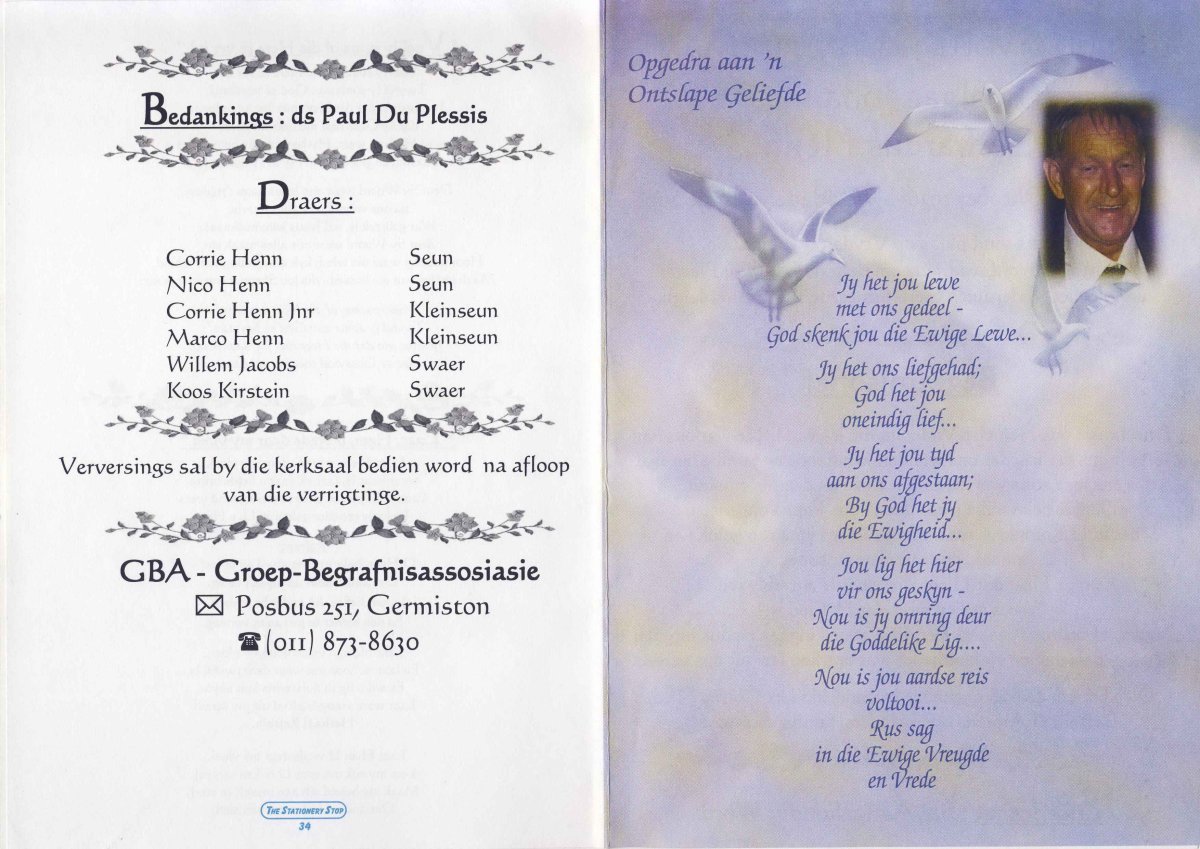 Bedankings : ds Paul Du Plessis
Draers :
Corrie Henn Seun
Nico Henn Seun
Corrie Henn Jnr Kleinseun
Marco Henn Kleinseun
Willem Jacobs Swaer
Koos Kirstein Swaer
Verversings sal by die kerksaal bedien word na afloop
van die verrigtinge.
GBA - Groep-Begrafnisassosiasie
✉ Posbus 251, Germiston
☎(011) 873-8630
THE STATIONERY STOP
34
Opgedra aan 'n
Ontslape Geliefde
Jy het jou lewe
met ons gedeel -
God skenk jou die Ewige Lewe...
Jy het ons liefgehad;
God het jou
oneindig lief...
Jy het jou tyd
aan ons afgestaan;
By God het jy
die Ewigheid...
Jou lig het hier
vir ons geskyn -
Nou is jy omring deur
die Goddelike Lig....
Nou is jou aardse reis
voltooi...
Rus sag
in die Ewige Vreugde
en Vrede